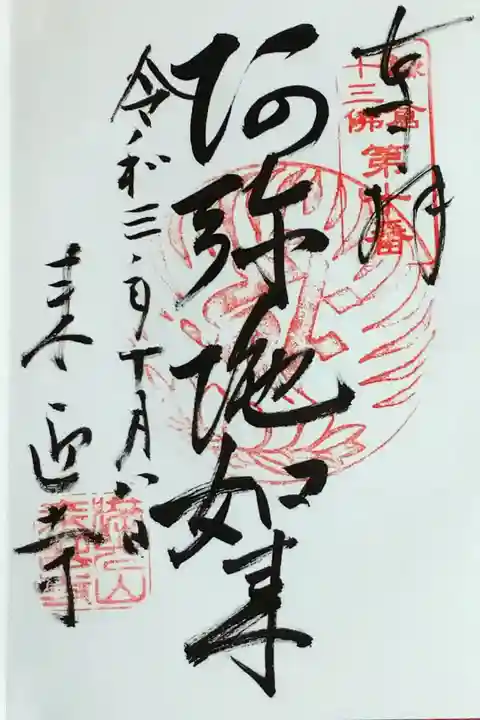 奉拝
十三佛
第十番
阿弥陀如来
令和三年十月八日
来迎寺